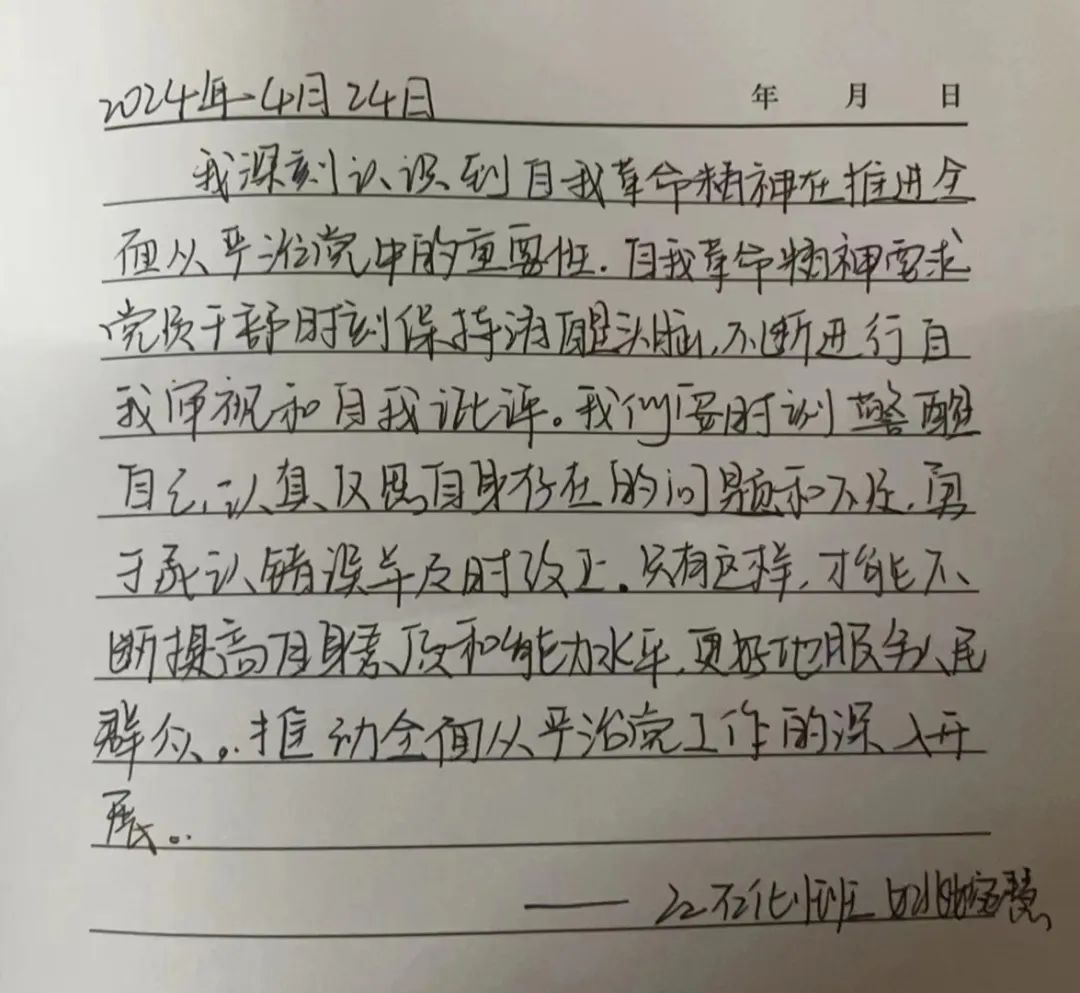 2024年4月24日 年 月 日
我深刻认识到自我革命精神在推进全
面从严治党中的重要性.自我革命精神要求
党员干部时刻保持清醒头脑,不断进行自
我审视和自我批评。我们要时刻警醒
自己,认真反思自身存在的问题和不足,勇
于承认错误并及时改正。只有这样,才能不
断提高自身素质和能力水平,更好地服务人民
群众。推动全面从严治党工作的深入开
展。
—— 22石化1班